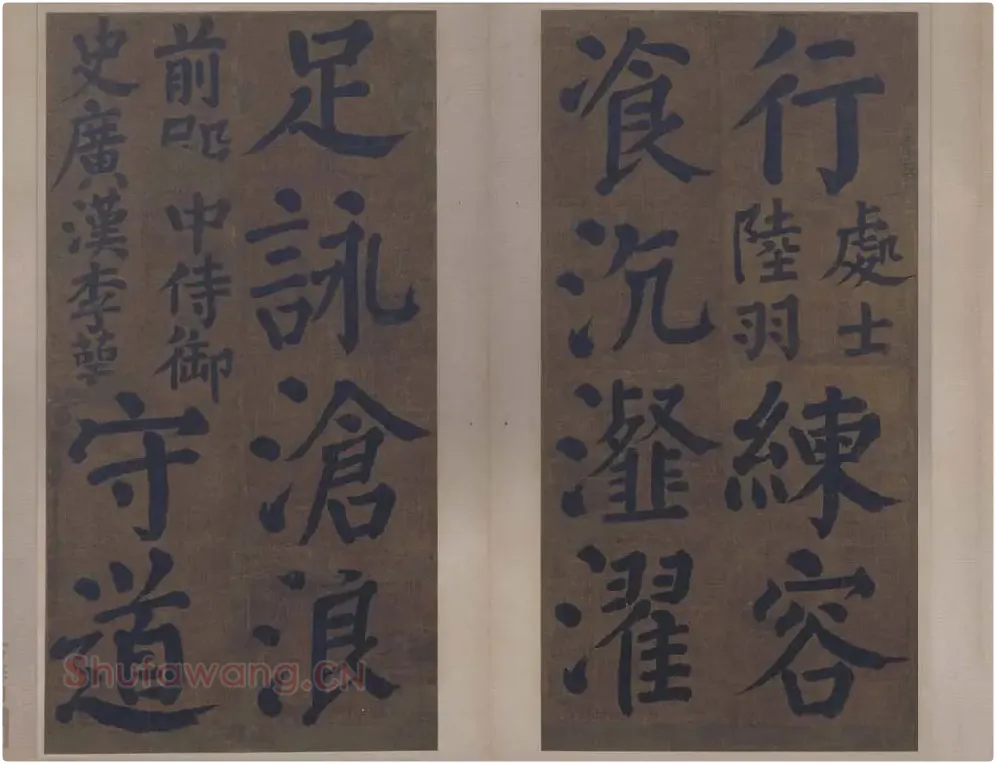 行
處士
陸羽
練容
飡沆瀣濯
足詠滄浪
前中侍御
史廣漢李萼
守道
Shufawang.CN